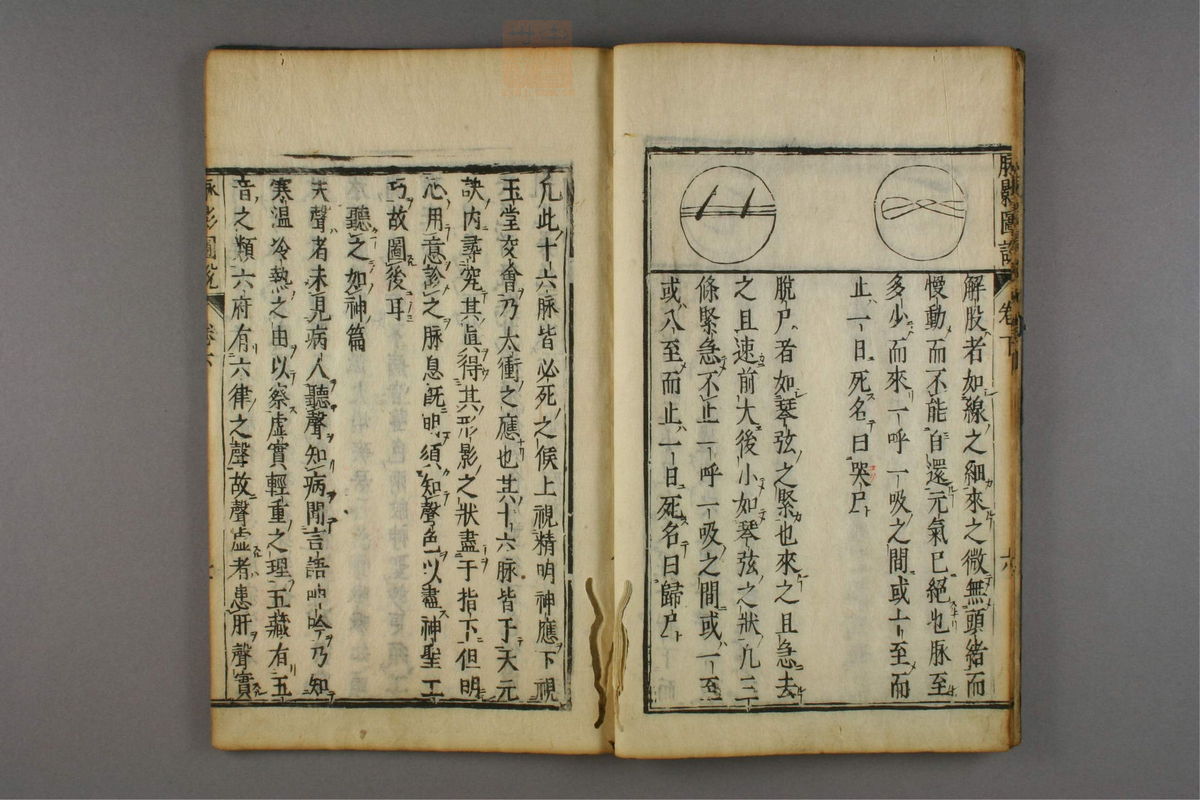 脉影圖說 卷下 六
解股者如線之細來之微無頭緒而
慢動而不能自還元氣已絕也脉至
多少而來一呼一吸之間或十至而
止一日死名曰哭尸
脫尸者如琴弦之緊也來之且急去
之且速前大後小如琴弦之狀几三
條緊急不止一呼一吸之間或一至
或八至而止一日死名曰歸尸
凢此十六脉皆必死之候上視精明神應下視
玉堂交會乃太衝之應也其十六脉皆于天元
訣内尋究其眞得其形影之狀盡于指下但明
心用意診之脉息旣明須知聲色以盡神聖工
巧故圖後耳
聽之如神篇
夫聲者未見病人聽聲知病聞言語呻吟乃知
寒温冷熱之由以察虛實輕重之理五藏有五
音之類六府有六律之聲故聲虛者患肝聲實
脉影圖說